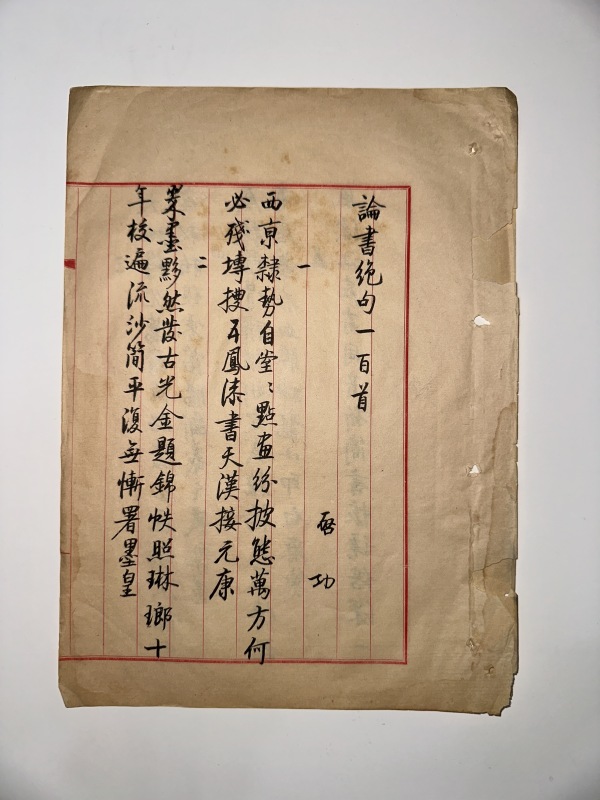 論書絶句一百首
啓功
一
西京隸勢自堂〻點畫紛披態萬方何
必殘塼搜五鳳漆書天漢接元康
二
翠墨黟然發古光金題錦帙照琳瑯十
年校遍流沙簡平復無慚署墨皇